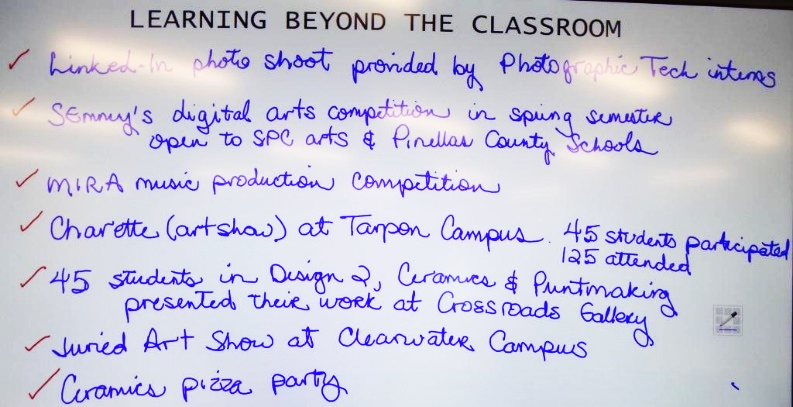 LEARNING BEYOND THE CLASSROOM
Linked-In photo shoot provided by Photographic Tech interns
SEmmy's digital arts competition in spring semester
open to SPC arts & Pinellas County Schools
MIRA music production competition
Charette (art show) at Tarpon Campus. 45 students participated
125 attended
45 students in Design 2, Ceramics & Printmaking
presented their work at Crossroads Gallery
Juried Art Show at Clearwater Campus
Ceramics pizza party